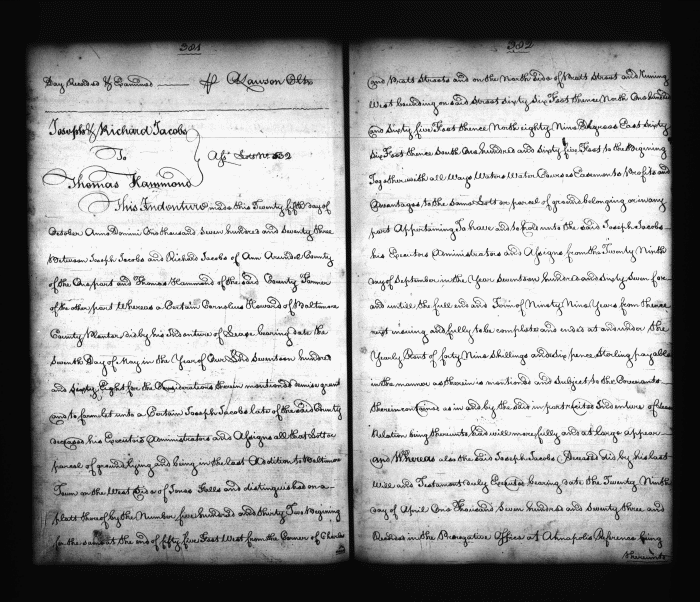 381
Day Recorded & Examined —— ⅌ Lawson Clk
Joseph & Richard Jacobs
To
Assignt Lot No 532
Thomas Hammond
This Indenture made this Twenty fifth day of
October Anno Domini One thousand Seven hundred and Seventy three
Between Joseph Jacobs and Richard Jacobs of Ann Arundle County
of the One part and Thomas Hammond of the said County Farmer
of the other part Whereas a Certain Cornelius Howard of Baltimore
County Planter did by his Indenture of Lease bearing date the
Seventh Day of May in the Year of Our Lord Seventeen hundred
and Sixty Eight for the Considerations therein mentioned demise grant
and to farm let unto a Certain Joseph Jacobs late of the said County
deceased his Executors Administrators and Assigns all that Lot or
parcel of ground lying and being in the last Addition to Baltimore
Town on the West Side of Jones Falls and distinguished on a
platt thereof by the Number five hundred and thirty Two Begining
for the same at the end of fifty five Feet West from the Corner of Charles
332
and Pratt Streets and on the North Side of Pratt Street and runing
West bounding on said Street Sixty Six Feet thence North One hundred
and Sixty five Feet thence North eighty Nine Degrees East Sixty
Six Feet thence South One hundred and Sixty five Feet to the Begining
Together with all Ways Waters Water Courses Easements Profits and
Advantages to the same Lott or parcel of ground belonging or in any
part Appertaining To have and to hold unto the said Joseph Jacobs
his Executors Administrators and Assigns from the Twenty Ninth
day of September in the Year Seventeen hundred and Sixty Seven for
and untill the full end and Term of Ninety Nine Years from thence
next insuing and fully to be complete and ended at and under the
Yearly Rent of forty Nine Shillings and Six pence Sterling payable
in the manner as therein is mentioned and Subject to the Covenants
therein contained as in and by the said in part recited Indenture of Lease
Relation being thereunto had will more fully and at large appear
and Whereas also the said Joseph Jacobs Deceased did by his last
Will and Testament duly Executed bearing date the Twenty Ninth
day of April One Thousand Seven hundred and Seventy three and
Recorded in the Perogative Office at Annapolis Reference being
thereunto